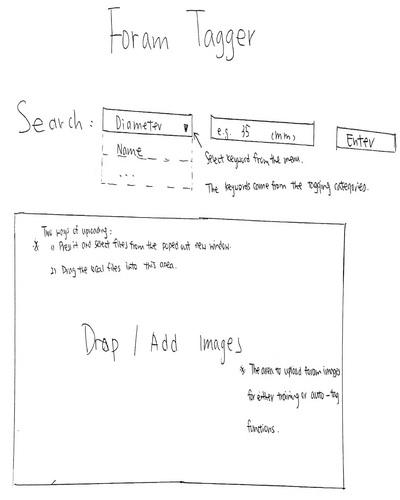 Foram Tagger
Search : Diameter ▼ e.g. 35 (mm) Enter
Name
...
Select keyword from the menu.
The keywords come from the tagging categories.
Two ways of uploading :
* 1) Press it and select files from the poped out new window.
2) Drag the local files into this area.
Drop / Add Images
* The area to upload foram images
for either training or auto-tag
functions.